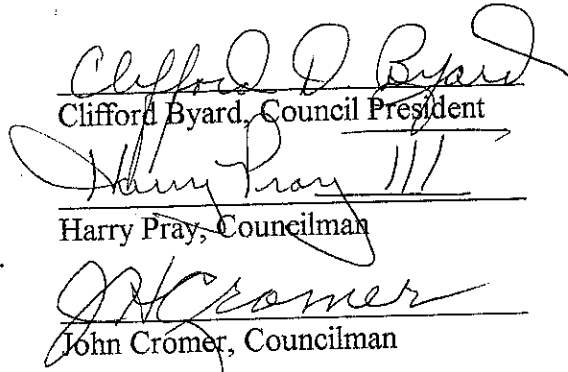 Clifford D Byard
Clifford Byard, Council President
Harry Pray III
Harry Pray, Councilman
JHCromer
John Cromer, Councilman